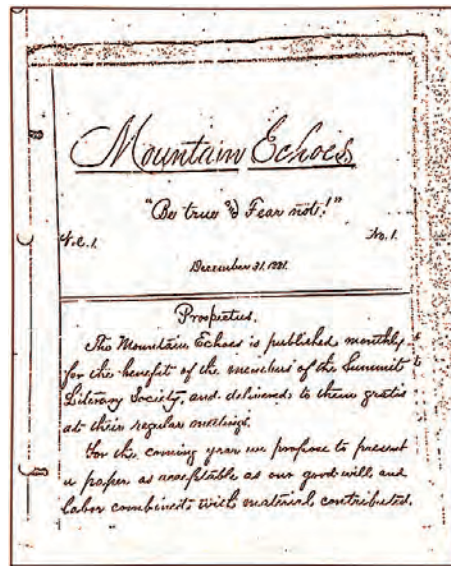 Mountain Echoes
"Be true and Fear not!"
Vol. 1. No. 1.
December 31, 1881.
Prospectus.
The Mountain Echoes is published monthly
for the benefit of the members of the Summit
Literary Society, and delivered to them gratis
at their regular meetings.
For the coming year we propose to present
a paper as acceptable as our good will and
labor combined with material contributed.